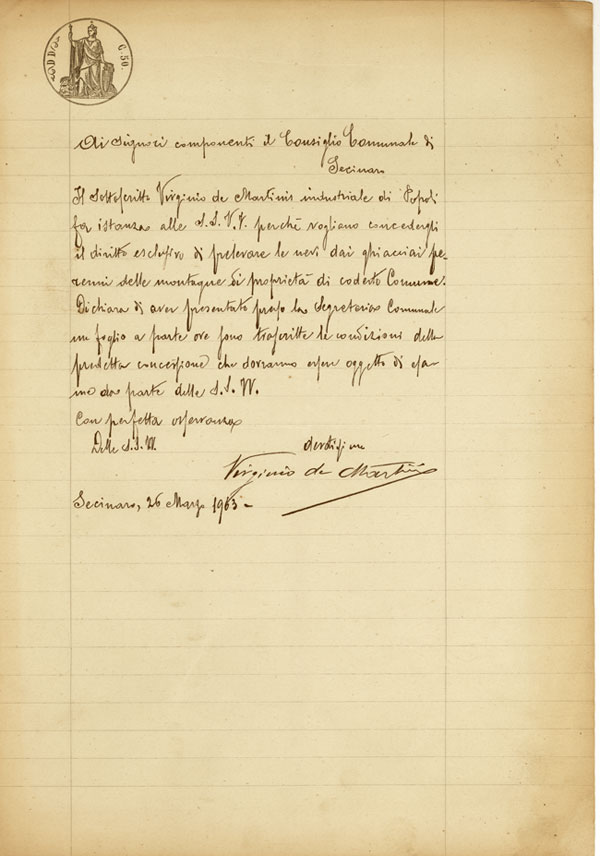 C. 50
Ai Signori componenti il Consiglio Comunale di
Secinaro
Il Sottoscritto Virginio de Martinis industriale di Popoli
fa istanza alle S.S. V.V. perchè vogliano concedergli
il diritto esclusivo di prelevare le nevi dai ghiacciai pe-
renni delle montagne di proprietà di codesto Comune.
Dichiara di aver presentato presso la Segreteria Comunale
un foglio a parte ove sono trascritte le condizioni della
predetta concessione che dovranno essere oggetto di esa-
me da parte delle S.S. VV.
Con perfetta osservanza
Delle S.S. VV. devotissimo
Virginio de Martinis
Secinaro, 26 Marzo 1903 -